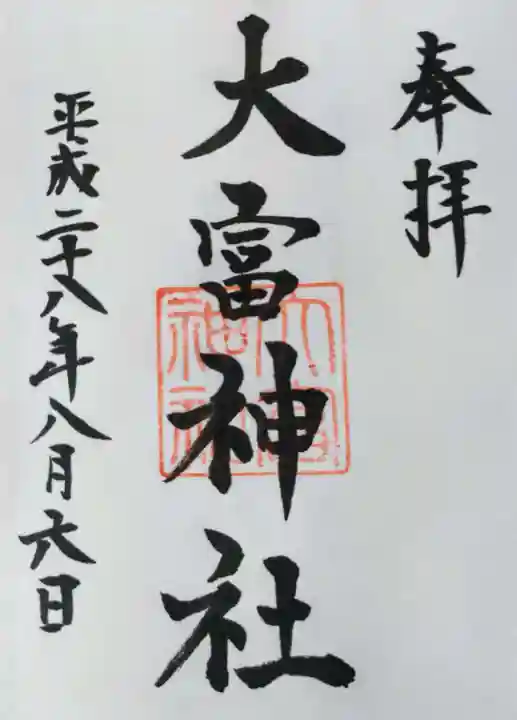 奉拝
大富神社
平成二十八年八月六日